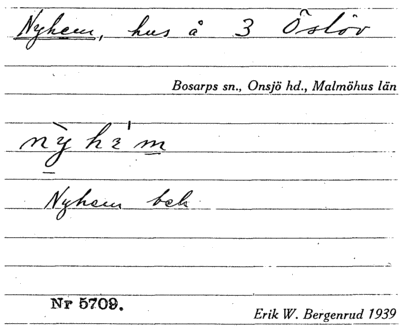 Nyhem, hus å 3 Östöv
Bosarps sn., Onsjö hd., Malmöhus län
Nyhem bek.
Nr 5709.
Erik W. Bergenrud 1939